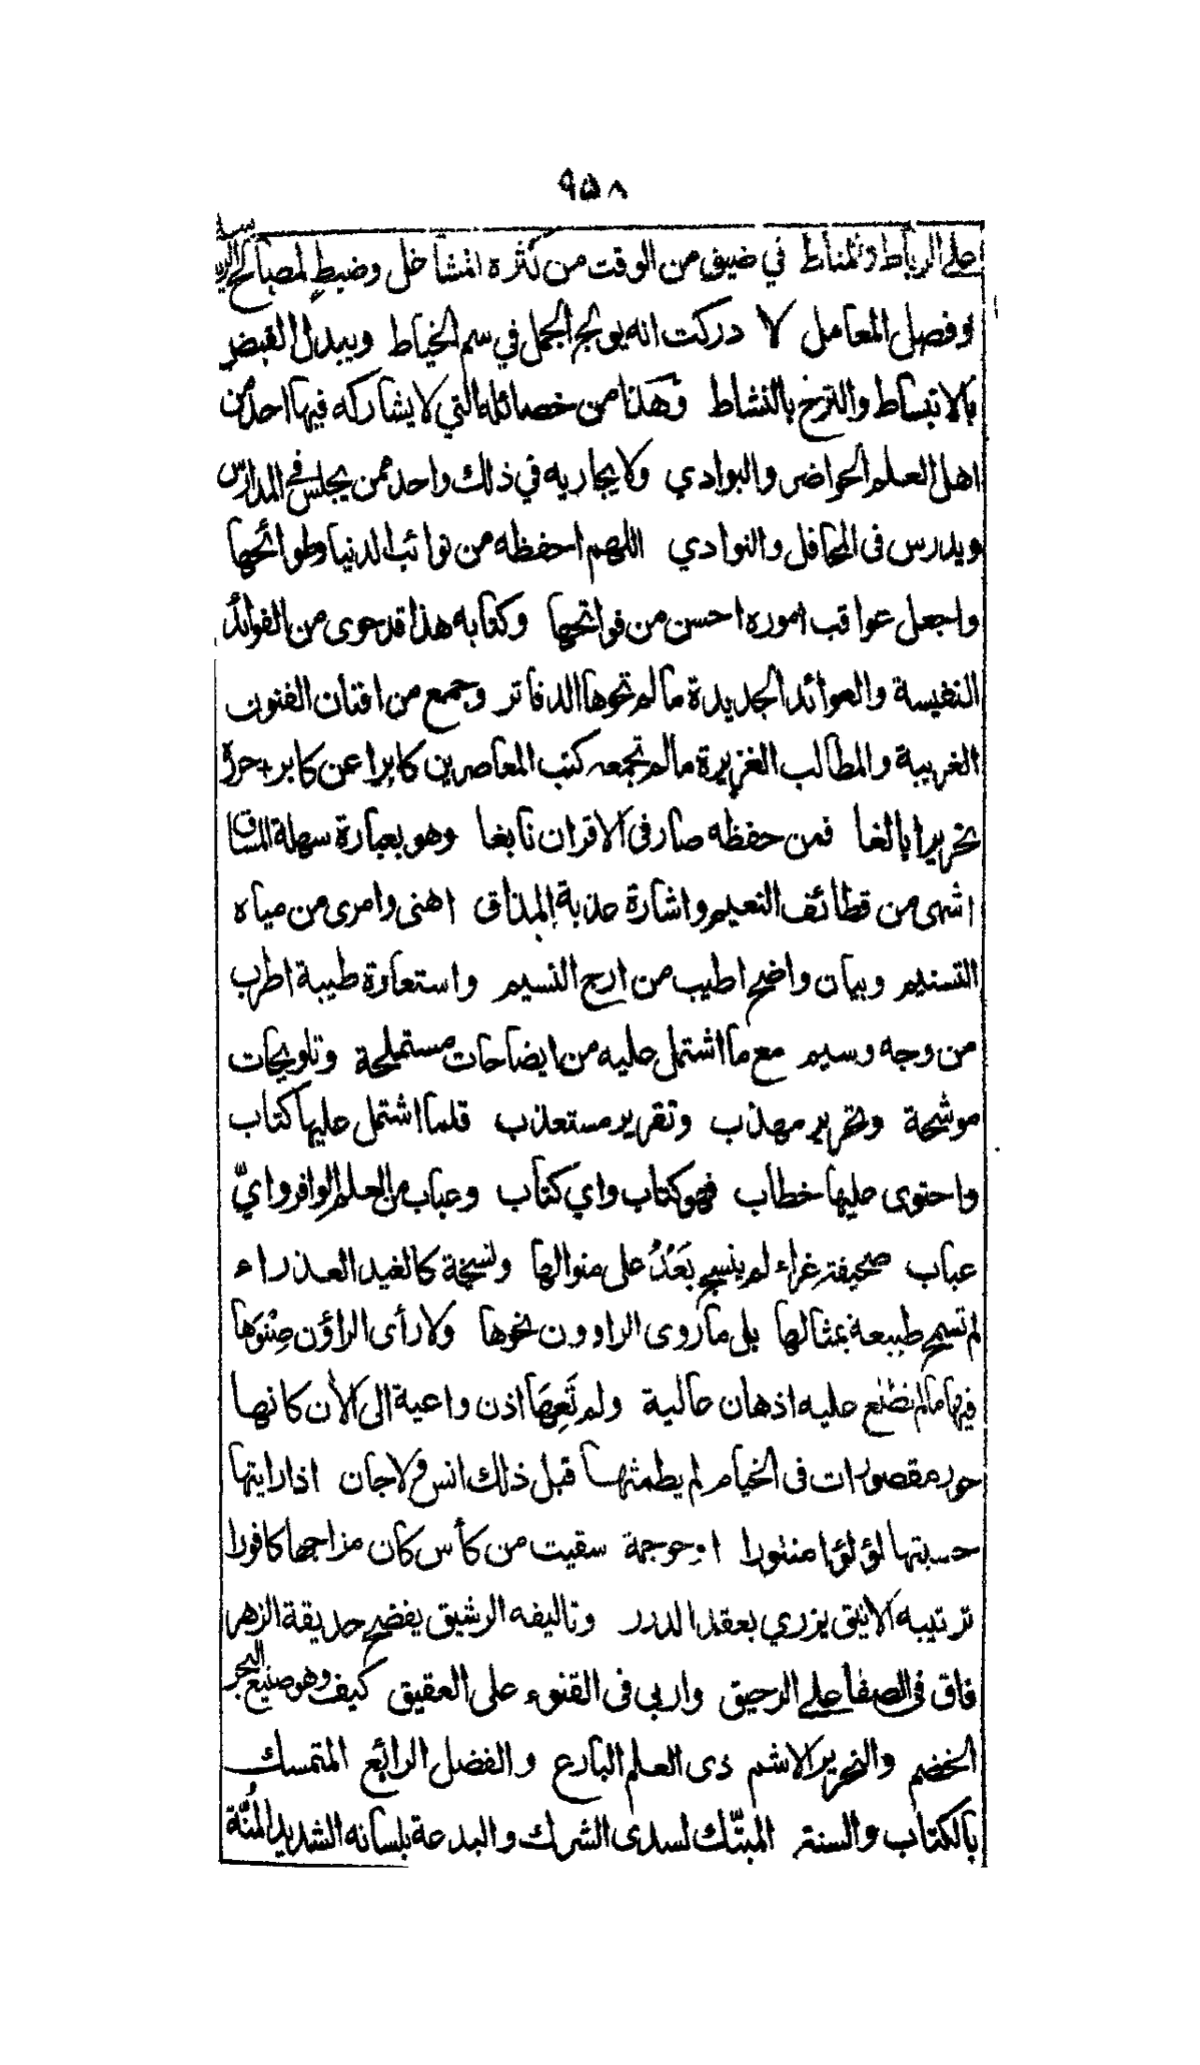 ٩٥٨
على الرباط والمناط في ضيق من الوقت من كثرة المشاغل وضبط لمصالح
وفصل المعامل لا دركت انه يولج الجمل في سم الخياط ويبدل القبض
بالانبساط والترح بالنشاط وهذا من خصائله التي لا يشاركه فيها احد من
اهل العلم الحواضر والبوادي ولا يجاريه في ذلك واحد ممن يجلس في المدارس
ويدرس في المحافل والنوادي اللهم احفظه من نوائب الدنيا وطوائحها
واجعل عواقب اموره احسن من فواتحها وكتابه هذا قد حوى من الفوائد
النفيسة والعوائد الجديدة ما لم تحوها الدفاتر وجمع من افنان الفنون
الغريبة والمطالب الغزيرة ما لم تجمعه كتب المعاصرين كابرا عن كابر حرره
تحريرا بالغا فمن حفظه صار في الاقران نابغا وهو بعبارة سهلة المساق
اشهى من قطائف النعيم واشارة عذبة المذاق اهنى وامرى من مياه
التسنيم وبيان واضح اطيب من ارج النسيم واستعارة طيبة اطرب
من وجه وسيم مع ما اشتمل عليه من ايضاحات مستملحة وتلويحات
موشحة وتحرير مهذب وتقرير مستعذب قلما اشتمل عليها كتاب
واحتوى عليها خطاب فهو كتاب واي كتاب وعباب من العلم الوافر وايّ
عباب صحيفة غراء لم ينسج بَعْدُ على منوالها ونسخة كالغيد العذراء
لم تسمح طبيعة بمثالها بلى ما روى الراوون نحوها ولا رأى الراؤن صِنْوَها
فيها ما لم تطلع عليه اذهان عالية ولم تَعِهَا اذن واعية الى الآن كانها
حور مقصورات في الخيام لم يطمثها قبل ذلك انس ولا جان اذا رايتها
حسبتها لؤلؤا منثورا او حوجمة سقيت من كأس كان مزاجها كافورا
ترتيبه الانيق يزري بعقد الدرر وتاليفه الرشيق يفضح حديقة الزهر
فاق في الصفا على الرحيق واربى في القنوء على العقيق كيف وهو صنيع البحر
الخضم والنحرير الاشم ذى العلم البارع والفضل الرائع المتمسك
بالكتاب والسنة المبتّك لسدى الشرك والبدعة بلسانه الشديد المُنّة